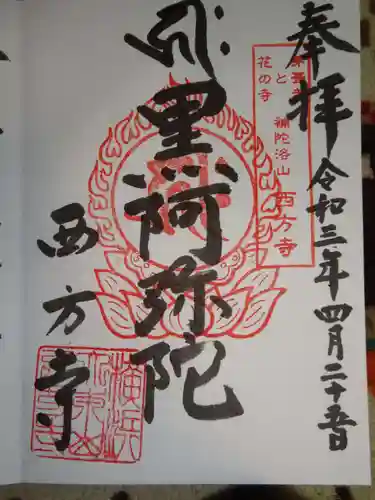 奉拝
令和三年四月二十五日
花の寺
補陀洛山 西方寺
黒阿弥陀
西方寺